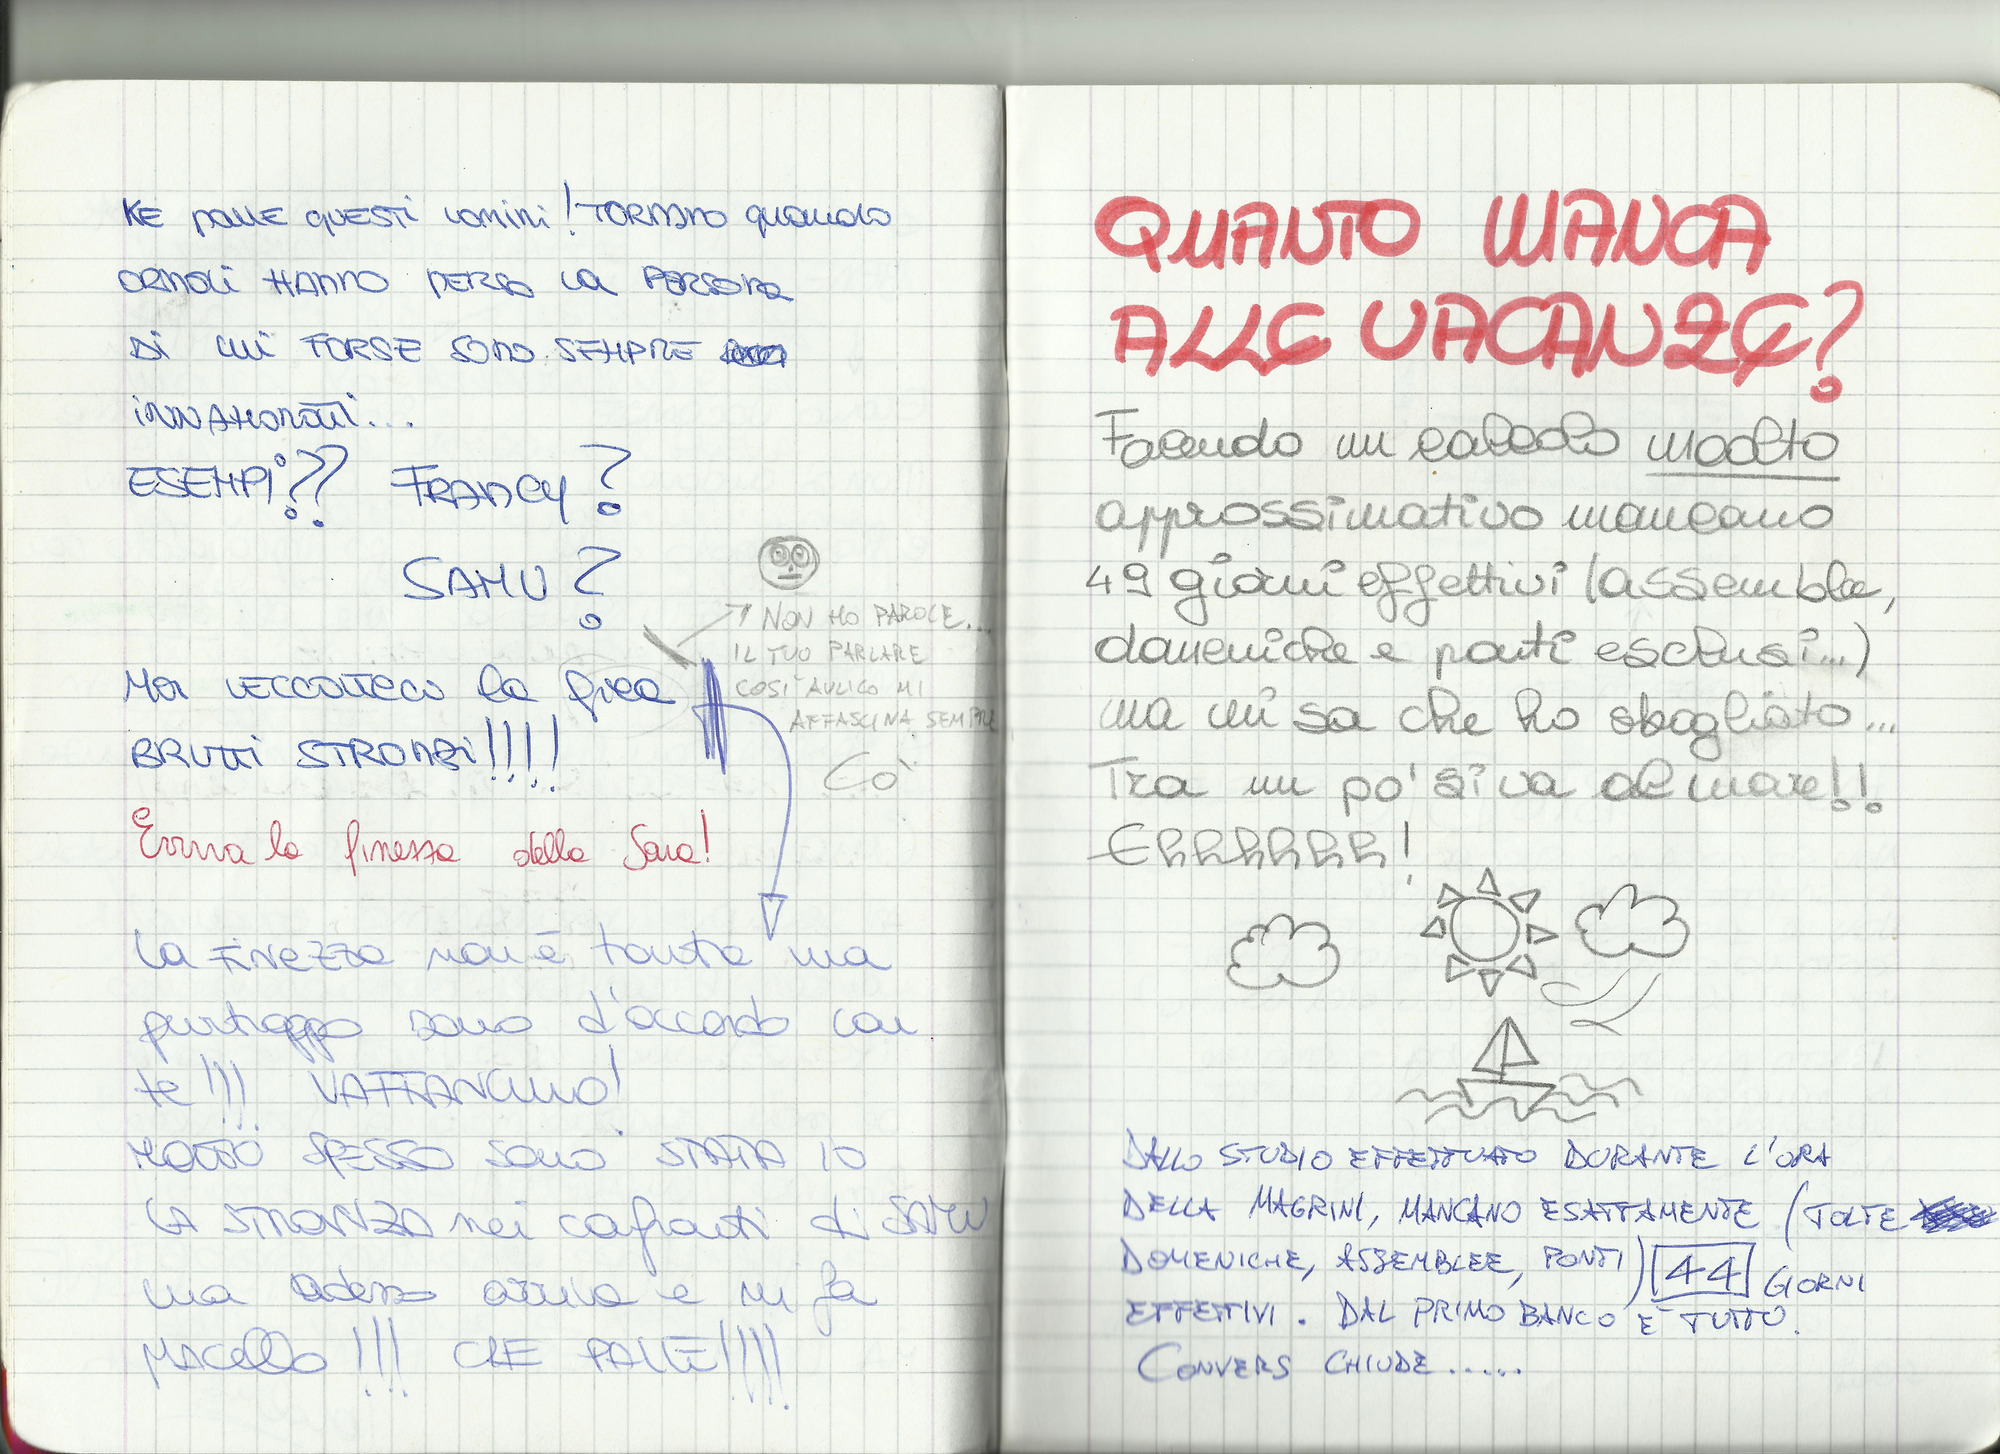 KE PALLE QUESTI uomini! TORNANO quando
ORMAi HANNO PERSO la PERSONA
Di cui FORSE SONO SEMPRE
iNNAMORATi...
ESEMPi?? FRANCY?
SAMU?
NON HO PAROLE...
IL TUO PARLARE
COSI' AULICO MI
AFFASCINA SEMPRE
Cò
MA LECCATECI la figa
BRUTTi STRONZi!!!!
Evviva la finezza della Sara!
La FiNEZZA non è tanta ma
purtroppo sono d'accordo con
te!!! VAFFANCULO!
MOLTO SPESSO sono STATA IO
LA STRONZA nei confronti di SAMU
ma adesso arriva e mi fa
MACello!!! CHE PALLE!!!!
QUANTO MANCA
ALLE VACANZE?
Facendo un calcolo molto
approssimativo mancano
49 giorni effettivi (assemblee,
domeniche e ponti esclusi...)
ma mi sa che ho sbagliato...
Tra un po' si va al mare!!
EHHHHHH!
DALLO STUDIO EFFETTUATO DURANTE L'ORA
DELLA MAGRINI, MANCANO ESATTAMENTE (TOLTE
DOMENICHE, ASSEMBLEE, PONTI) 44 GIORNI
EFFETTIVI. DAL PRIMO BANCO E' TUTTO.
CONVERS CHIUDE.....